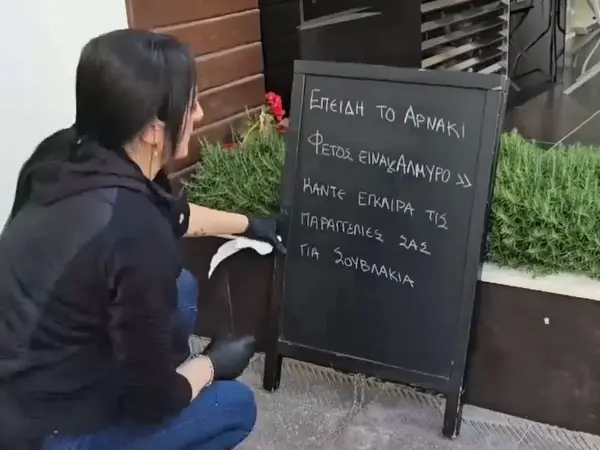 ΕΠΕΙΔΗ ΤΟ ΑΡΝΑΚΙ
ΦΕΤΟΣ ΕΙΝΑΙ «ΑΛΜΥΡΟ»
ΚΑΝΤΕ ΕΓΚΑΙΡΑ ΤΙΣ
ΠΑΡΑΓΓΕΛΙΕΣ ΣΑΣ
ΓΙΑ ΣΟΥΒΛΑΚΙΑ